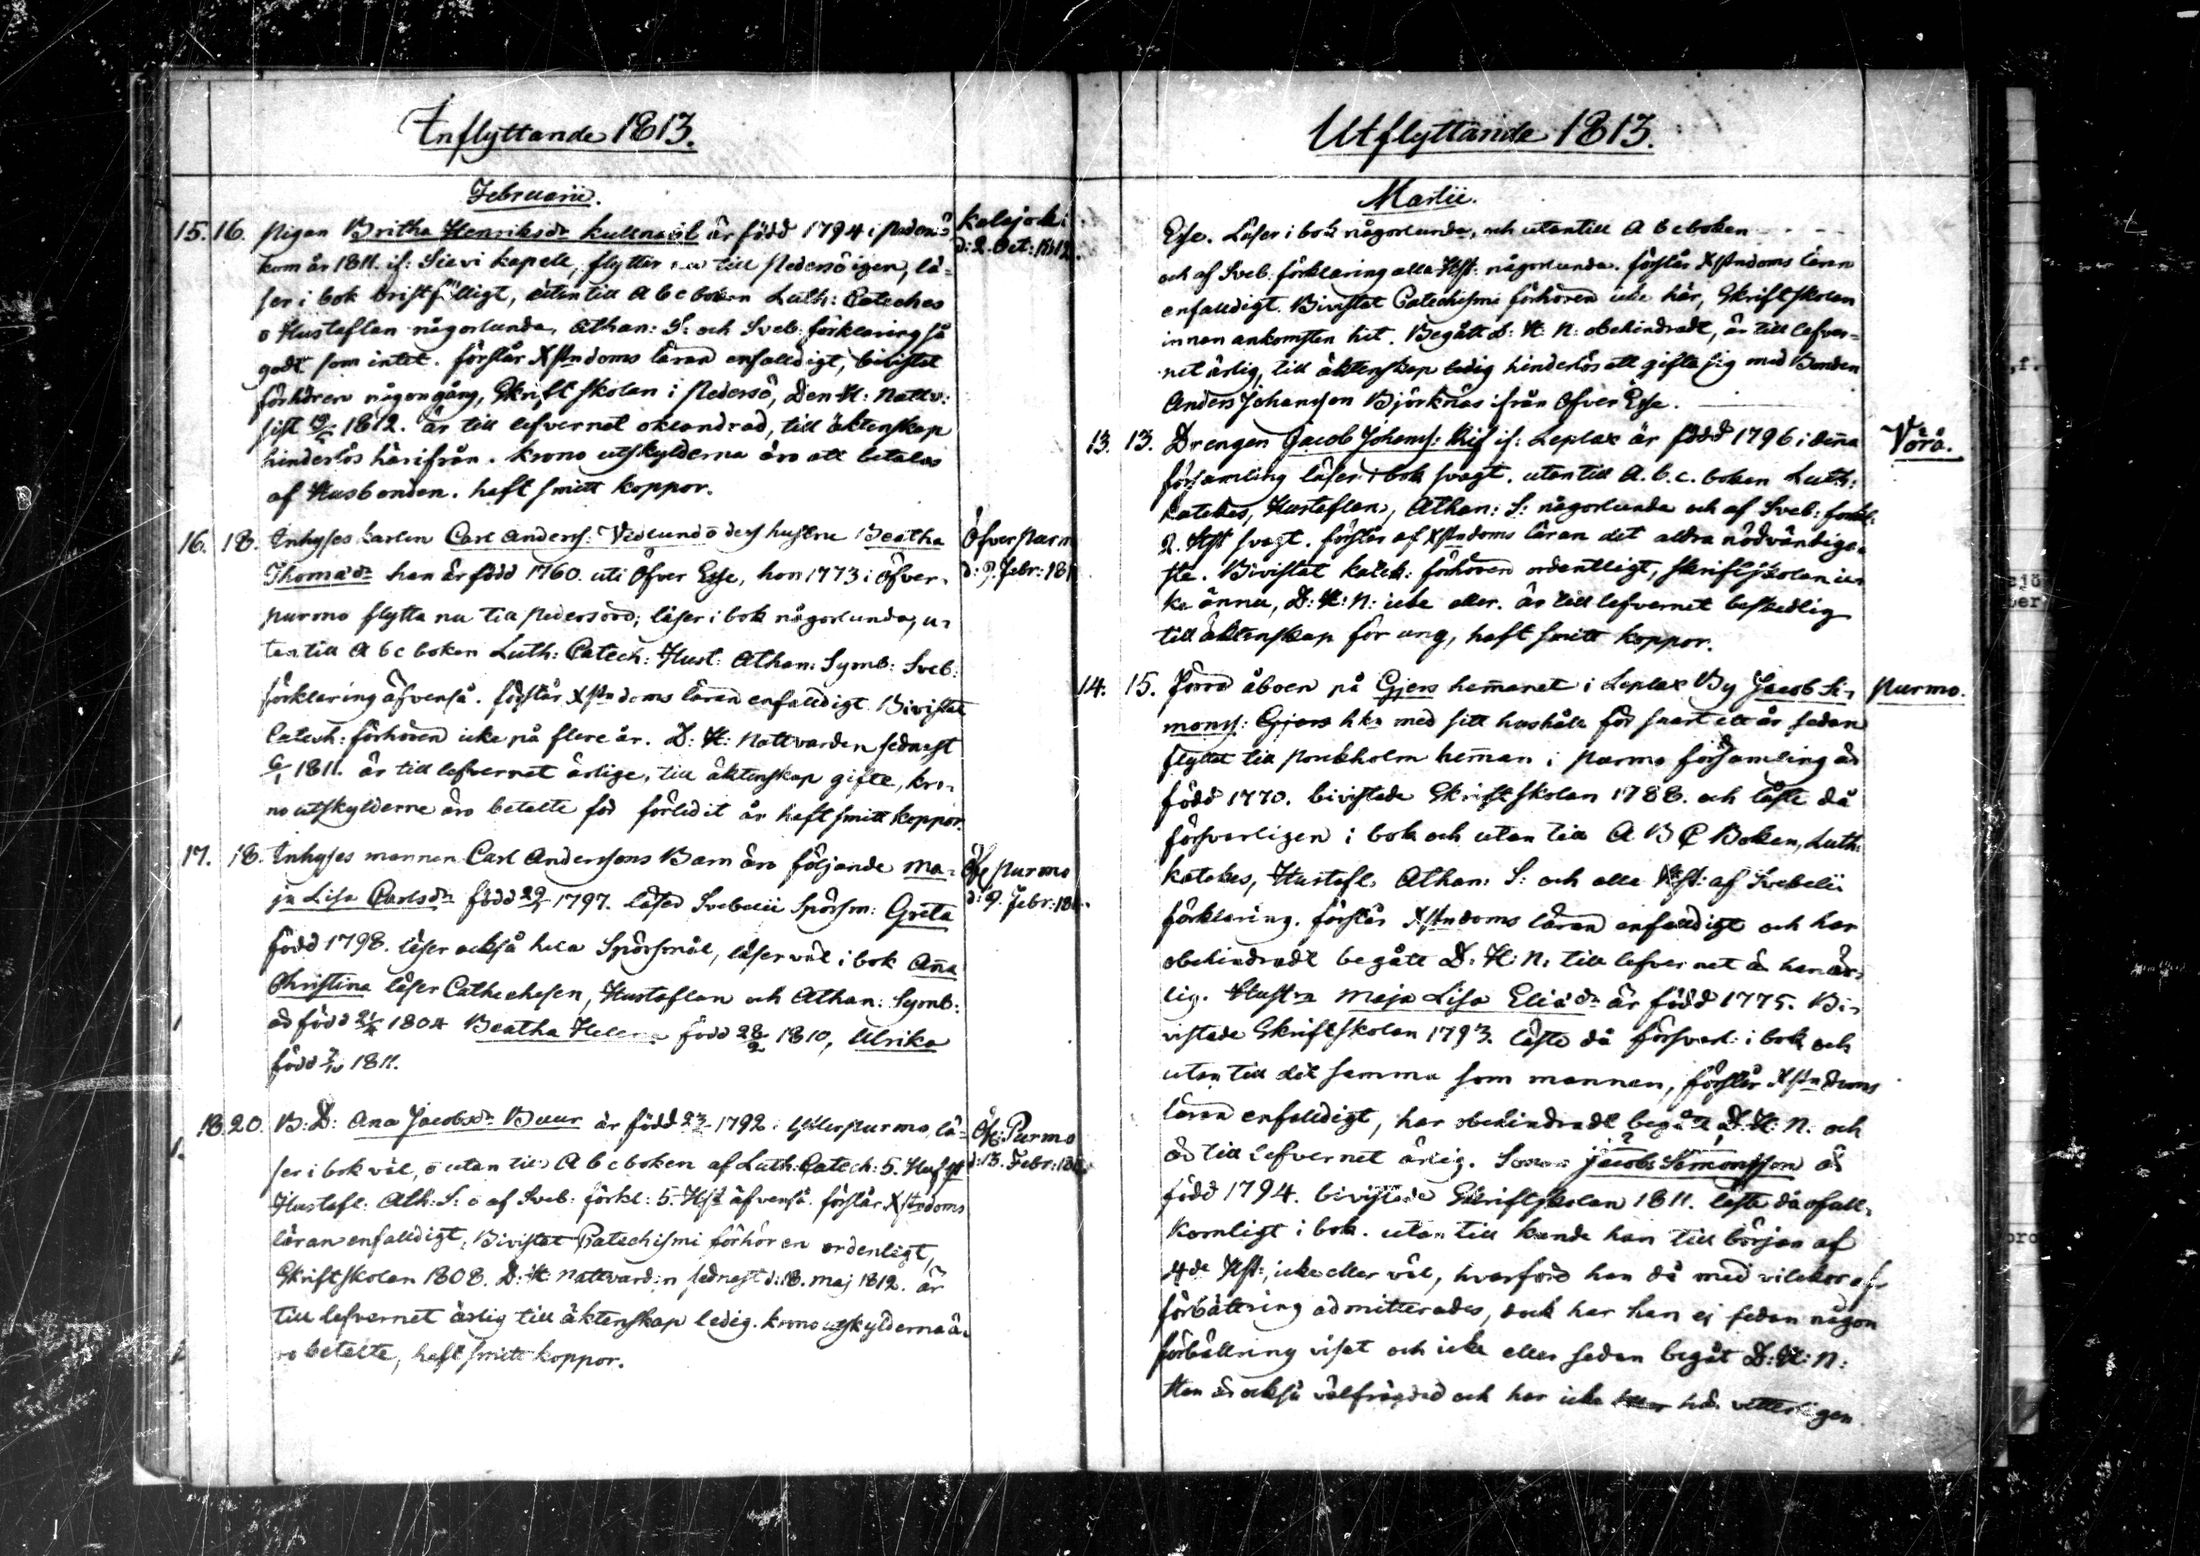 Inflyttande 1813.
Februarii.
15. 16. Pigan Britha Henriksdr är född 1794 i
Kalajoki
d: 2. Oct: 1812.
kom år 1811. if: Sievi kapell, flyttar nu till Pedersö igen, lä-
ser i bok bristfälligt, utan till A b c boken Luth: Cateches
o Hustaflan någorlunda, Athan: S: och Sveb: förklaring så
godt som intet. förstår Xstndoms läran enfalldigt, bivistat
förhören någongång, Skriftskolan i Pedersö, Den H: Nattv:
sist 1812. är till lefvernet oklandrad, till äktenskap
hinderlös härifrån. krono utskylderna äro att betalas
af Husbonden. haft smitt koppor.
16. 18. Inhyses karlen Carl Anders: Vedlund o dess hustru Beatha
Öfverpurm
d: 9. Febr: 181
Thomædr han är född 1760. uti Öfver Esse, hon 1773 i Öfver-
purmo flytta nu till Pedersöre; läser i bok någorlunda, u-
tan till A b c boken Luth: Catech: Hust: Athan: Symb: Sveb:
förklaring äfvenså. förstår Xstndoms läran enfalldigt. Bivistat
Catech: förhören icke på flere år. D: H: Nattvarden sednast
6/1 1811. är till lefvernet ärlige, till äktenskap gifte, kro-
no utskylderne äro betalte för förledit år haft smitt koppor.
17. 18. Inhyses mannen Carl Anderssons Barn äro följande Ma-
Öfv Purmo
d: 9. Febr: 181
ja Lisa Carlsdr född 1797. läser Svebelii Spörsm: Greta
född 1798. läser också hela Spörsmål, läser väl i bok Aña
Christina läser Cathechesen, Hustaflan och Athan: Symb:
är född 1804 Beatha Helena född 28/2 1810, Ulrika
född 7/10 1811.
18. 20. B: D: Ana Jacobsdr Buur är född 1792 i Ytterpurmo, lä-
Öfv: Purmo
d: 13. Febr: 181
ser i bok väl, o utan till A b c boken af Luth: Catech: 5. Hufst
Hustafl: Ath: S: o af Sveb: förkl: 5. Hst äfvenså. förstår Xstndoms
läran enfalldigt, Bivistat Catechismi förhören ordenligt,
Skriftskolan 1808. D: H Nattvarden sednast d: 18. Maj 1812. är
till lefvernet ärlig till äktenskap ledig. krono utskylderna ä-
ro betalte, haft smitt koppor.
Utflyttande 1813.
Martii.
Esse. Läser i bok någorlunda, och utantill A b c boken
och af Sveb: förklaring alla Hst: någorlunda. förstår Xstndoms läran
enfalldigt. Bivistat Catechismi förhören icke här, Skriftskolan
innan ankomsten hit. Begått D: H: N: obehindradt, är till lefver-
net ärlig, till äktenskap ledig hinderlös att gifta sig med Bonden
Anders Johansson Björknäs ifrån Öfver Esse.
13. 13. Drengen Jacob Johans: if: Leplax är född 1796 i denna
Vörå.
församling läser i bok svagt. utantill A. b. c. boken Luth:
katekes, Hustaflan, Athan: S: någorlunda och af Sveb: förkl:
2. Hst svagt. förstår af Xstndoms läran det aldra nödvändiga-
ste. Bivistat katek: förhören ordentligt, skriftskolan ic-
ke ännu, D: H: N: icke eller. är till lefvernet beskedlig
till äktenskap för ung, haft smitt koppor.
14. 15. Förra åboen på Gjers hemanet i Leplax By Jacob Si-
Purmo.
mons: Gjers hkn med sitt hushåll för snart ett år sedan
flyttat till Porkholm heman i Purmo församling är
född 1770. bivistade Skriftskolan 1788. och läste då
försvarligen i bok och utan till A B C Boken, Luth:
katekes, Hustafl. Athan: S: och alla Hst: af Svebelii
förklaring. förstår Xstndoms läran enfalldigt och har
obehindradt begått D: H: N: till lefvernet är han är-
lig. Hustru Maja Lisa Eliædr är född 1775. Bi-
vistade Skriftskolan 1793. läste då försvarl: i bok och
utan till det samma som mannen, förstår Xstndoms
läran enfalldigt, har obehindradt begått D: H: N. och
är till lefvernet ärlig. Sonen Jacob Simonsson är
född 1794. bivistade Skriftskolan 1811. läste då ofull-
komligt i bok. utan till kunde han till början af
4de Hst:, icke eller väl, hvarföre han då med vilckor af
förbättring admitterades, dock har han ej sedan någon
förbättring visat och icke eller sedan begåt D: H: N:
Han är också välfrägdad och har icke här vetterligen